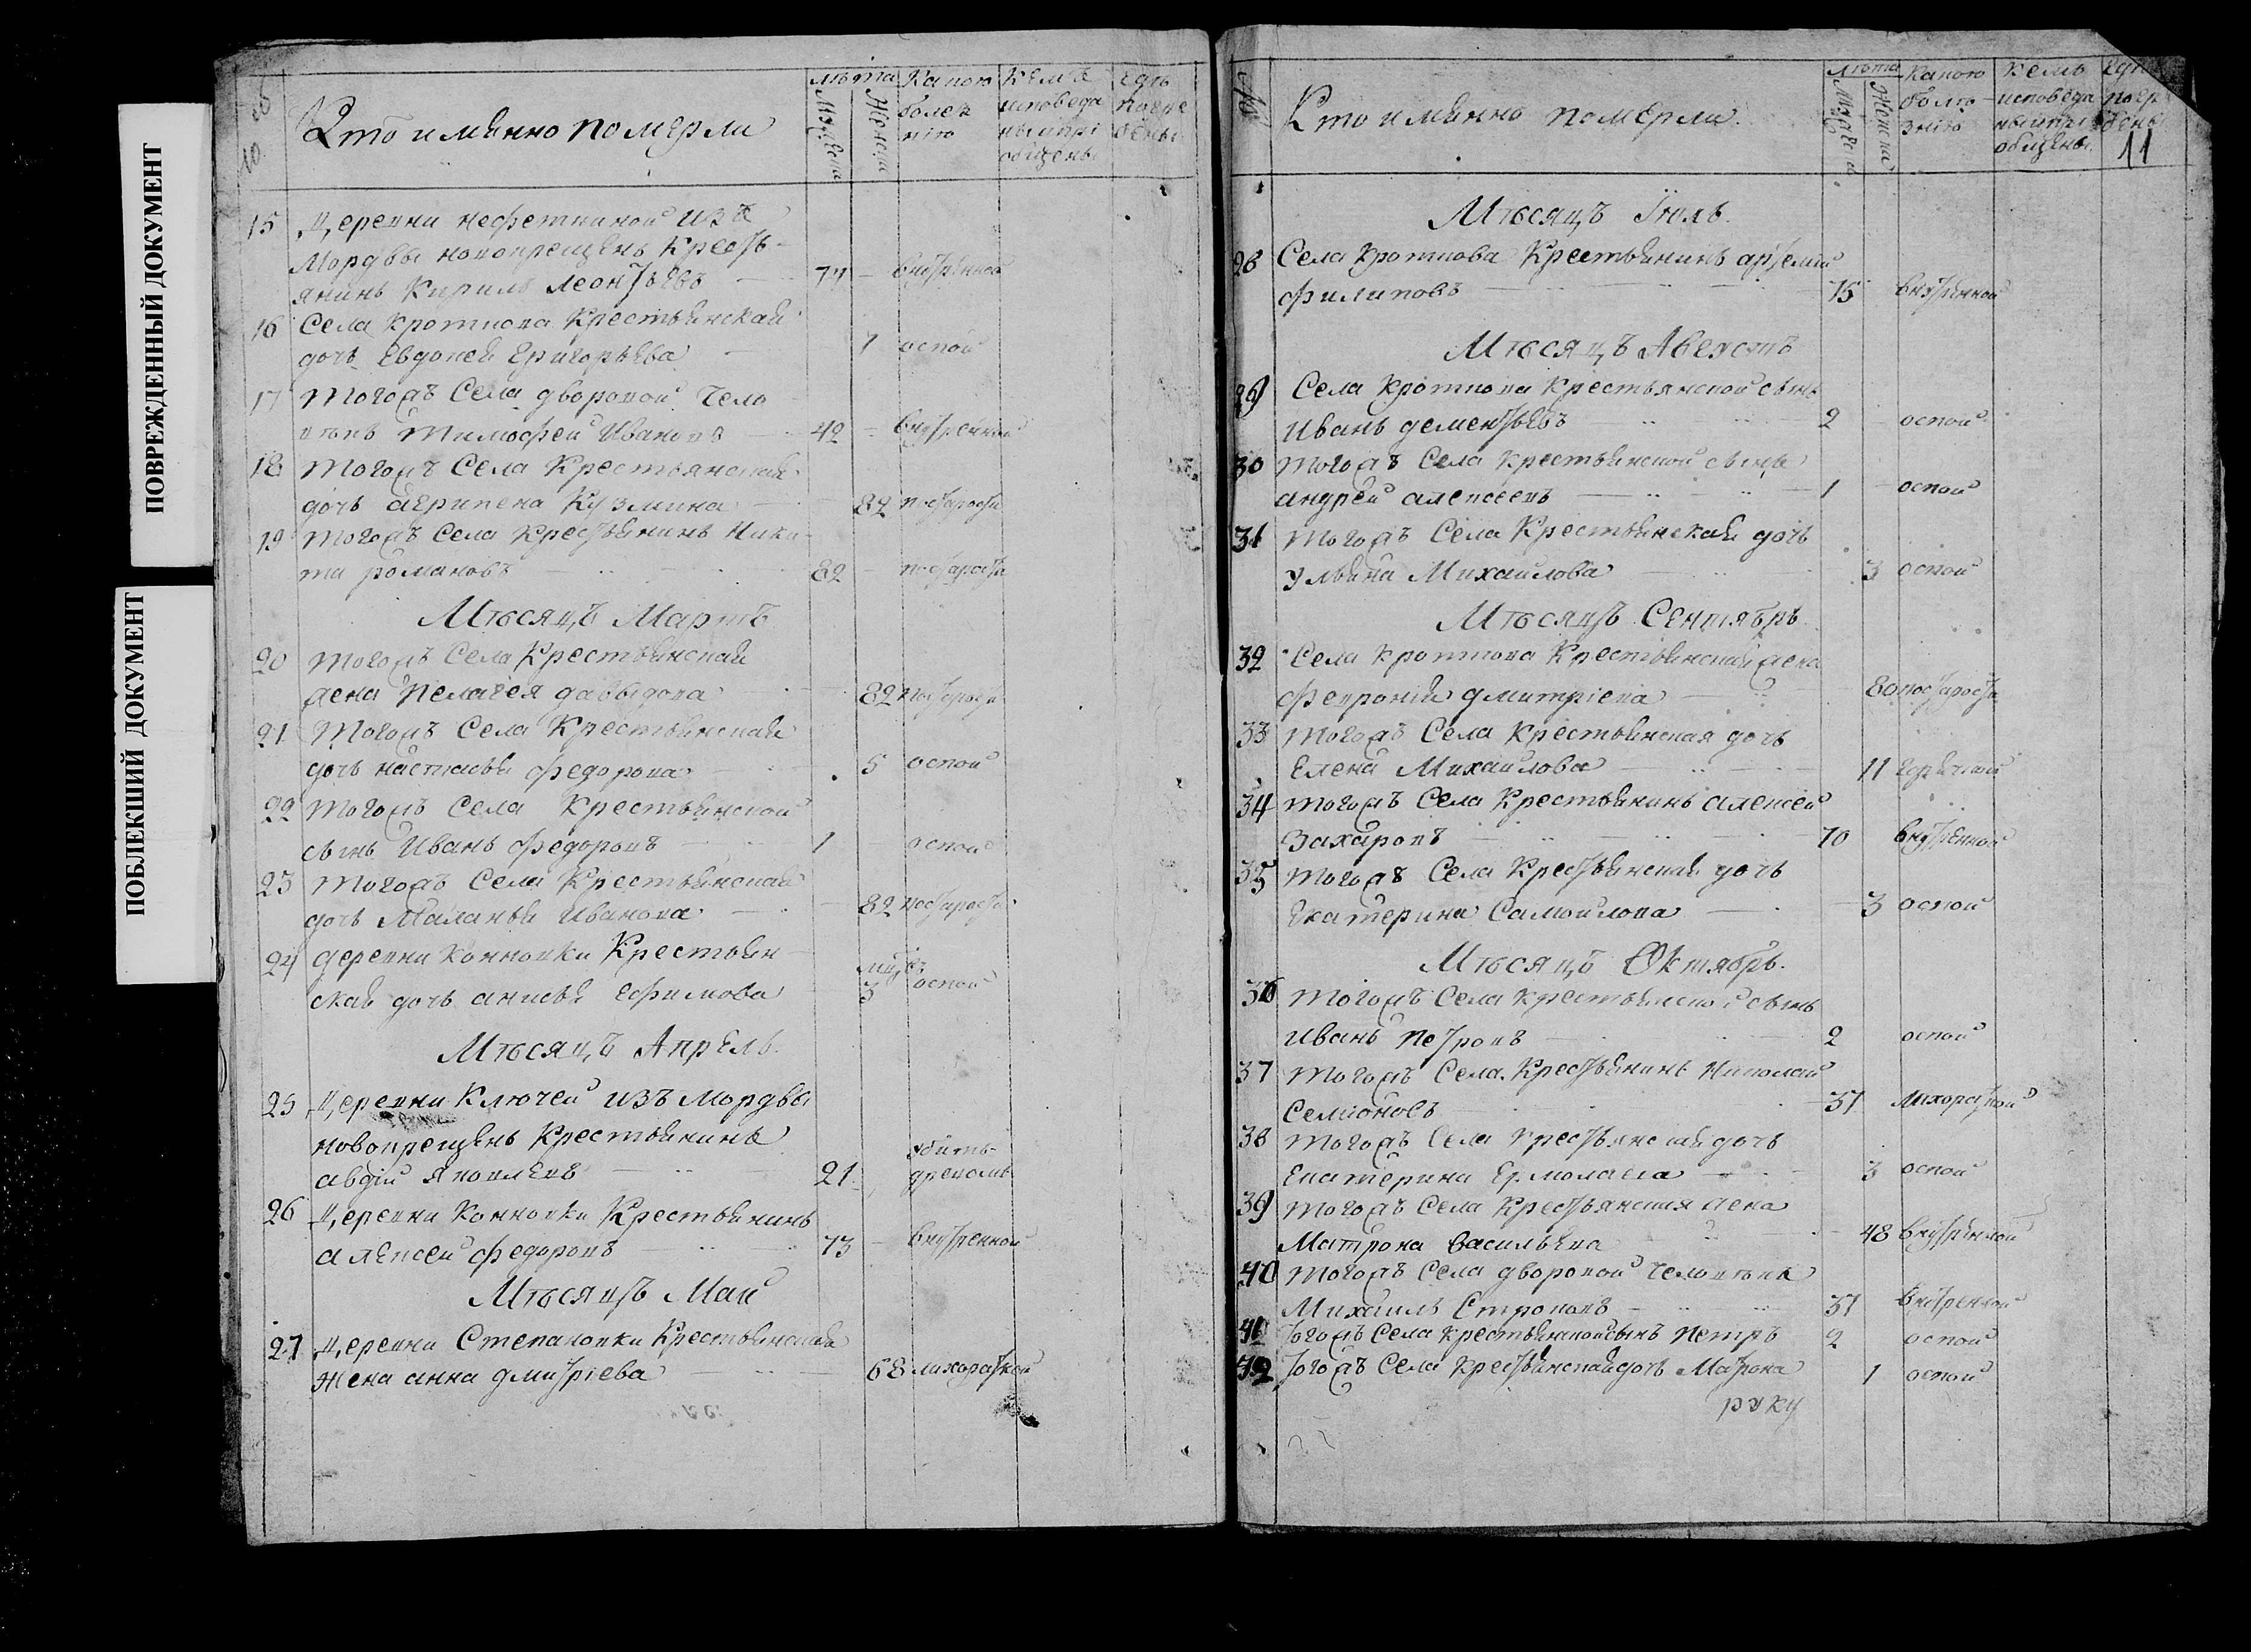 ПОВРЕЖДЕННЫЙ ДОКУМЕНТ
ПОБЛЕКШИЙ ДОКУМЕНТ
Кто имянно померли
лѣта
Мужеска
Женска
Какою болезнію
Кемъ исповеданы и пріобщены
Где погребены
15 Деревни нефеткиной изъ
Мордвы новокрещенъ Кресть-
янинъ Кирилъ леонтьевъ 74 внутренной
16 Села Кроткова Крестьянская
дочь Евдокея Григорьева 1 оспой
17 Тогожъ Села дворовой Чело
векъ Тимофей Ивановъ 42 внутренной
18 Тогожъ Села Крестьянская
дочь агрипена Кузмина 82 постарости
19 Тогожъ Села Крестьянинъ Ники
та романовъ 82 постарости
Мѣсяцъ Мартъ
20 Тогожъ Села Крестьянская
жена Пелагея давыдова 82 постарости
21 Тогожъ Села Крестьянская
дочь настасья федорова 5 оспой
22 Тогожъ Села Крестьянской
сынъ Иванъ федоровъ 1 оспой
23 Тогожъ Села Крестьянская
дочь Маланья Иванова 82 постарости
24 деревни Конновки Крестьян
ская дочь анисья ефимова мцъ 3 оспой
Мѣсяцъ Апрель
25 Деревни Ключей изъ Мордвы
новокрещенъ Крестьянинъ
авдій яковлевъ 21 убитъ древомъ
26 Деревни Конновки Крестьянинъ
алексей федоровъ 73 внутренной
Мѣсяцъ Маи
27 Деревни Степановки Крестьянская
жена анна дмитріева 68 лихораткой
Кто имянно померли
лѣта
Мужеска
Женска
Какою болезніѣю
кемъ исповеданы и пріобщены
где погребены
11
Мѣсяцъ Іюль
28 Села Кроткова Крестьянинъ артемій
филиповъ 75 внутренной
Мѣсяцъ Августъ
29 Села Кроткова Крестьянской сынъ
Иванъ дементьевъ 2 оспой
30 Тогожъ Села крестьянской сынъ
андрей алексеевъ 1 оспой
31 Тогожъ Села Крестьянская дочь
Ульяна Михаилова 3 оспой
Мѣсяцъ Сентябрь
32 Села Кроткова Крестьянская жена
феврония дмитріева 80 постарости
33 Тогожъ Села Крестьянская дочь
Елена Михаилова 11 горячкой
34 Тогожъ Села Крестьянинъ алексей
Захаровъ 70 внутренной
35 Тогожъ Села Крестьянская дочь
Екатерина Самойлова 3 оспой
Мѣсяцъ Октябрь
36 Тогожъ Села крестьянской сынъ
Иванъ Петровъ 2 оспой
37 Тогожъ Села Крестьянинъ Николай
Семіоновъ 37 лихораткой
38 Тогожъ Села крестьянская дочь
Екатерина Ермолаева 3 оспой
39 Тогожъ Села Крестьянская жена
Матрона васильева 48 внутренной
40 Тогожъ Села дворовой человѣкъ
Михаилъ 37 внутренной
41 Тогожъ Села крестьянской сынъ Петръ 2 оспой
42 Тогожъ Села Крестьянская дочь Матрона 1 оспой